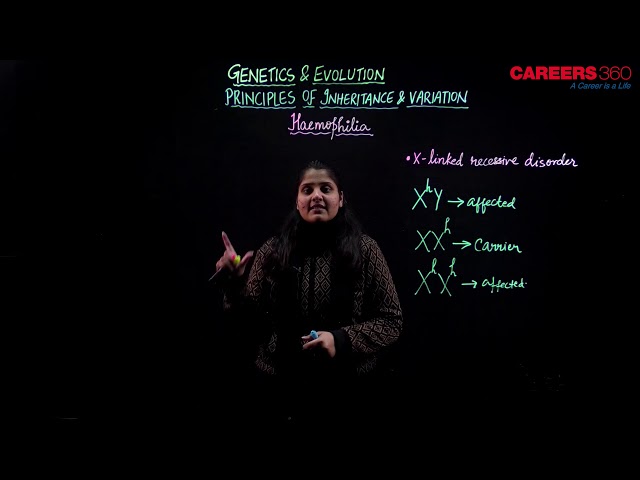 GENETICS & EVOLUTION
PRINCIPLES OF INHERITANCE & VARIATION
Haemophilia
CAREERS360
A Career is a Life
• X-linked recessive disorder
XʰY → affected
XXʰ → Carrier
XʰXʰ → affected.